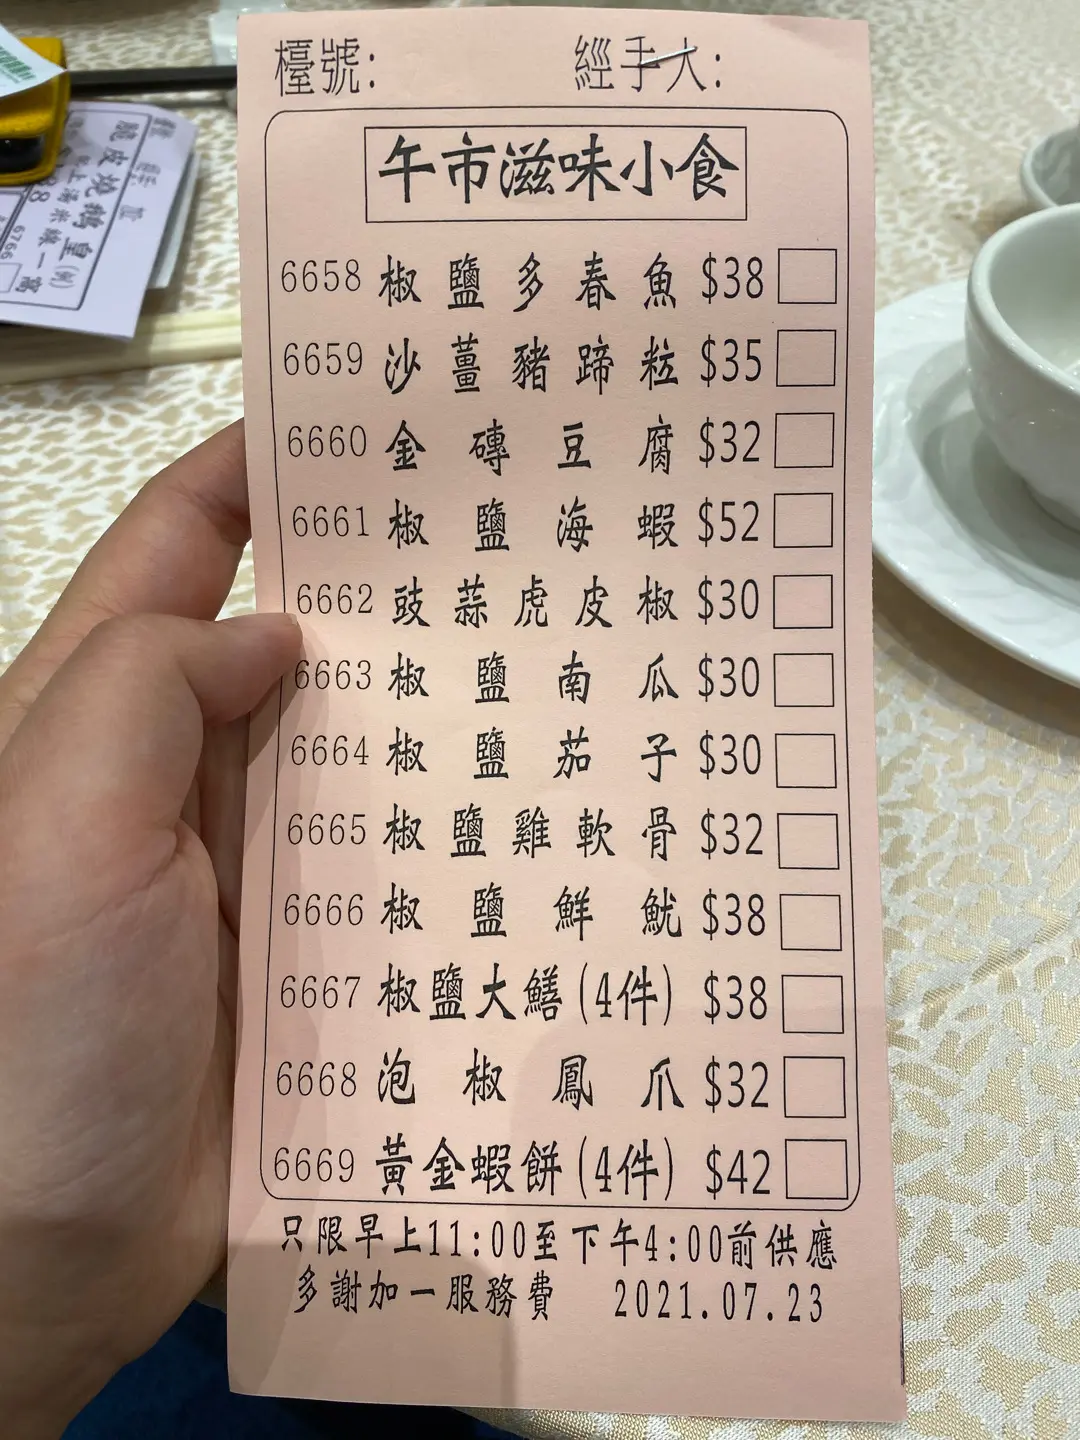 檯號: 經手人:
午市滋味小食
6658 椒鹽多春魚 $38
6659 沙薑豬蹄粒 $35
6660 金磚豆腐 $32
6661 椒鹽海蝦 $52
6662 豉蒜虎皮椒 $30
6663 椒鹽南瓜 $30
6664 椒鹽茄子 $30
6665 椒鹽雞軟骨 $32
6666 椒鹽鮮魷 $38
6667 椒鹽大鱔(4件) $38
6668 泡椒鳳爪 $32
6669 黃金蝦餅(4件) $42
只限早上11:00至下午4:00前供應
多謝加一服務費 2021.07.23
脆皮燒鵝皇
上湯米線一窩